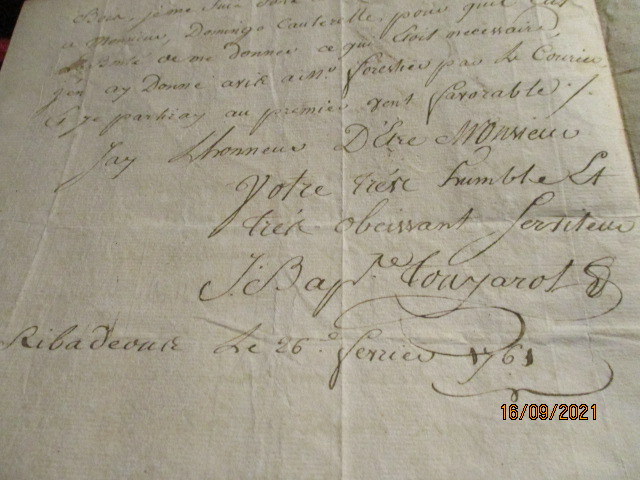 a Monsieur, Domingo Cauterelle pour quil eut
de me donner a qui Etoit necessaire
jen ay Donné avis a Mr. forestier par Le Courier
Et je partiray au premier vent favorable ./.
Jay Lhonneur D'Etre Monsieur
Votre trés humble Et
trés obeissant Serviteur
J. Bap.te Touyarot
Ribadeous Le 26.e fevrier 1761
16/09/2021